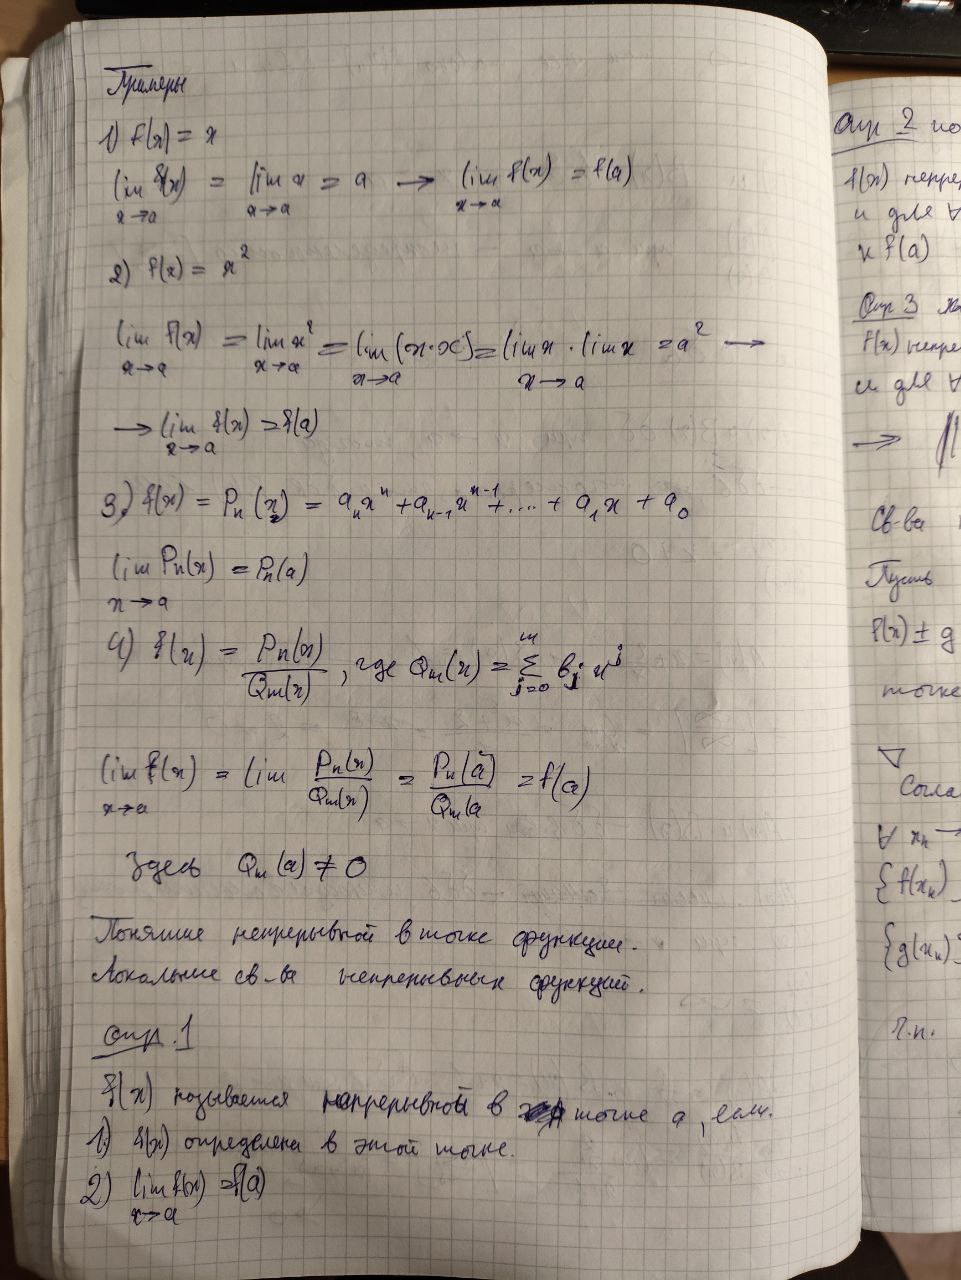 Примеры
1) f(x) = x
lim f(x) = lim x = a → lim f(x) = f(a)
x→a x→a x→a
2) f(x) = x²
lim f(x) = lim x² = lim (x·x) = lim x · lim x = a² →
x→a x→a x→a x→a
→ lim f(x) = f(a)
x→a
3) f(x) = Pₙ(x) = aₙxⁿ + aₙ₋₁xⁿ⁻¹ + .... + a₁x + a₀
lim Pₙ(x) = Pₙ(a)
x→a
4) f(x) = Pₙ(x)/Qₘ(x), где Qₘ(x) = ∑ⱼ₌₀ᵐ bⱼ xʲ
lim f(x) = lim Pₙ(x)/Qₘ(x) = Pₙ(a)/Qₘ(a = f(a)
x→a
Здесь Qₘ(a) ≠ 0
Понятие непрерывной в точке функции.
Локальные св-ва непрерывных функций.
Опр.1
f(x) называется непрерывной в точке a, если.
1) f(x) определена в этой точке.
2) lim f(x) = f(a)
x→a
Опр 2 по
f(x) непрер
и для ∀
к f(a)
Опр 3
f(x) непре
и для ∀
→
Св-ва
Пусть
f(x) ± g
точке
▽
Согла
∀ xₙ →
{f(xₙ)
{g(xₙ)}
т.п.